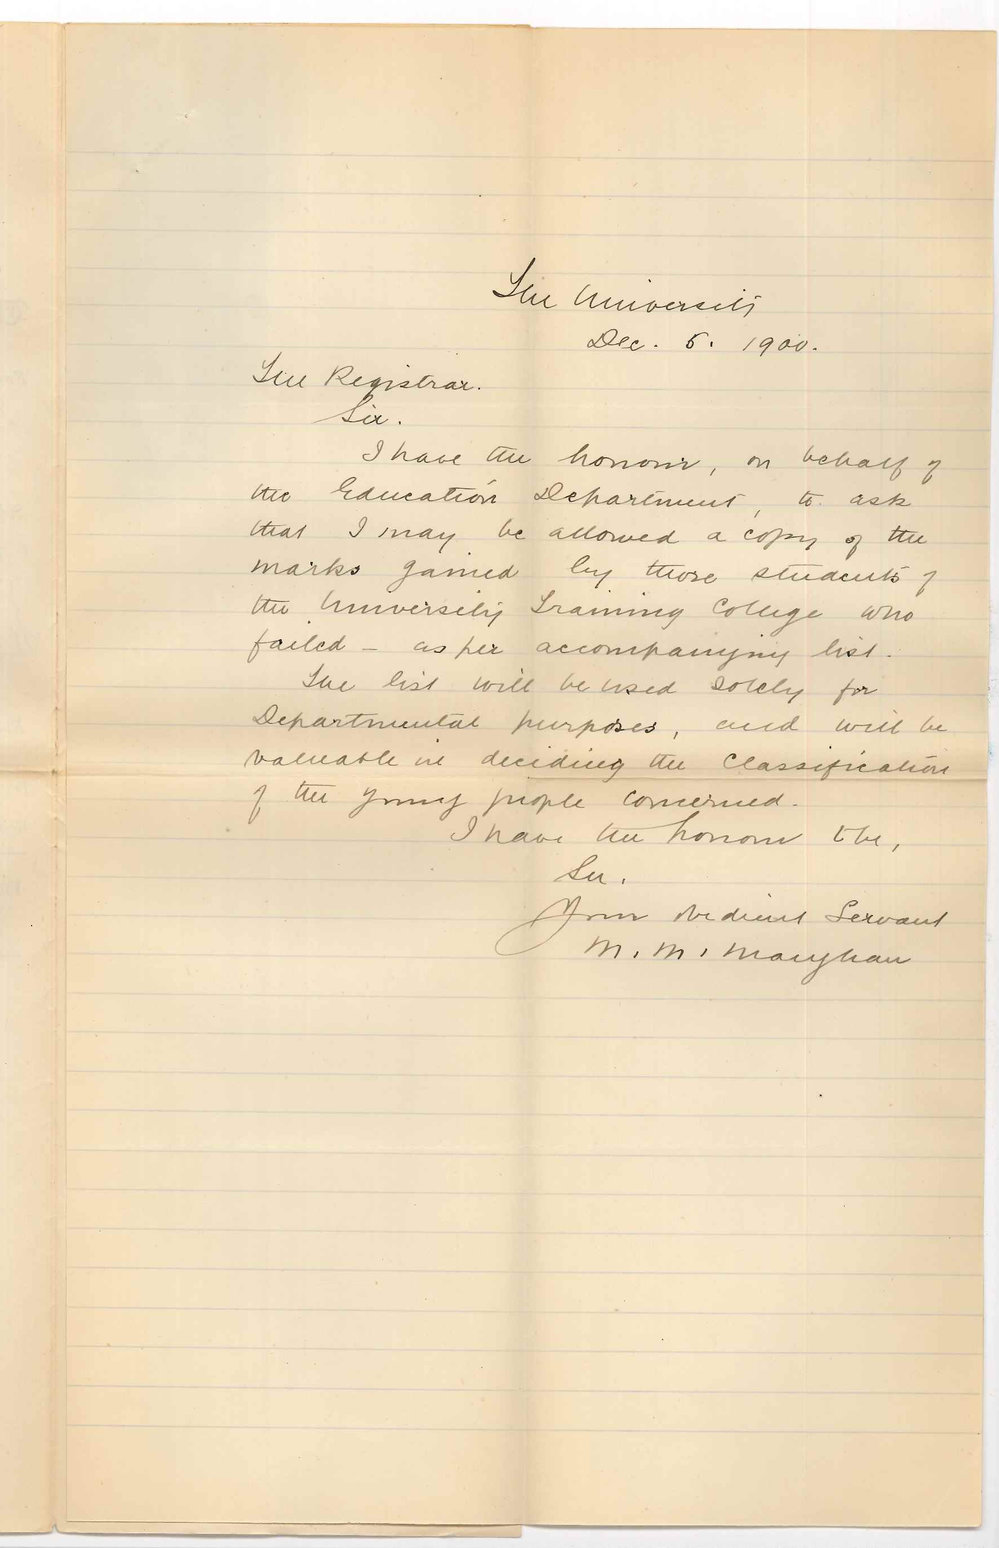 The University
Dec. 5. 1900.
The Registrar.
Sir.
I have the honour, on behalf of
the Education Department, to ask
that I may be allowed a copy of the
marks gained by those students of
the University Training College who
failed - as per accompanying list.
The list will be used solely for
Departmental purposes, and will be
valuable in deciding the classification
of the young people concerned.
I have the honour to be,
Sir.
Your obedient Servant
M. M. Maughan